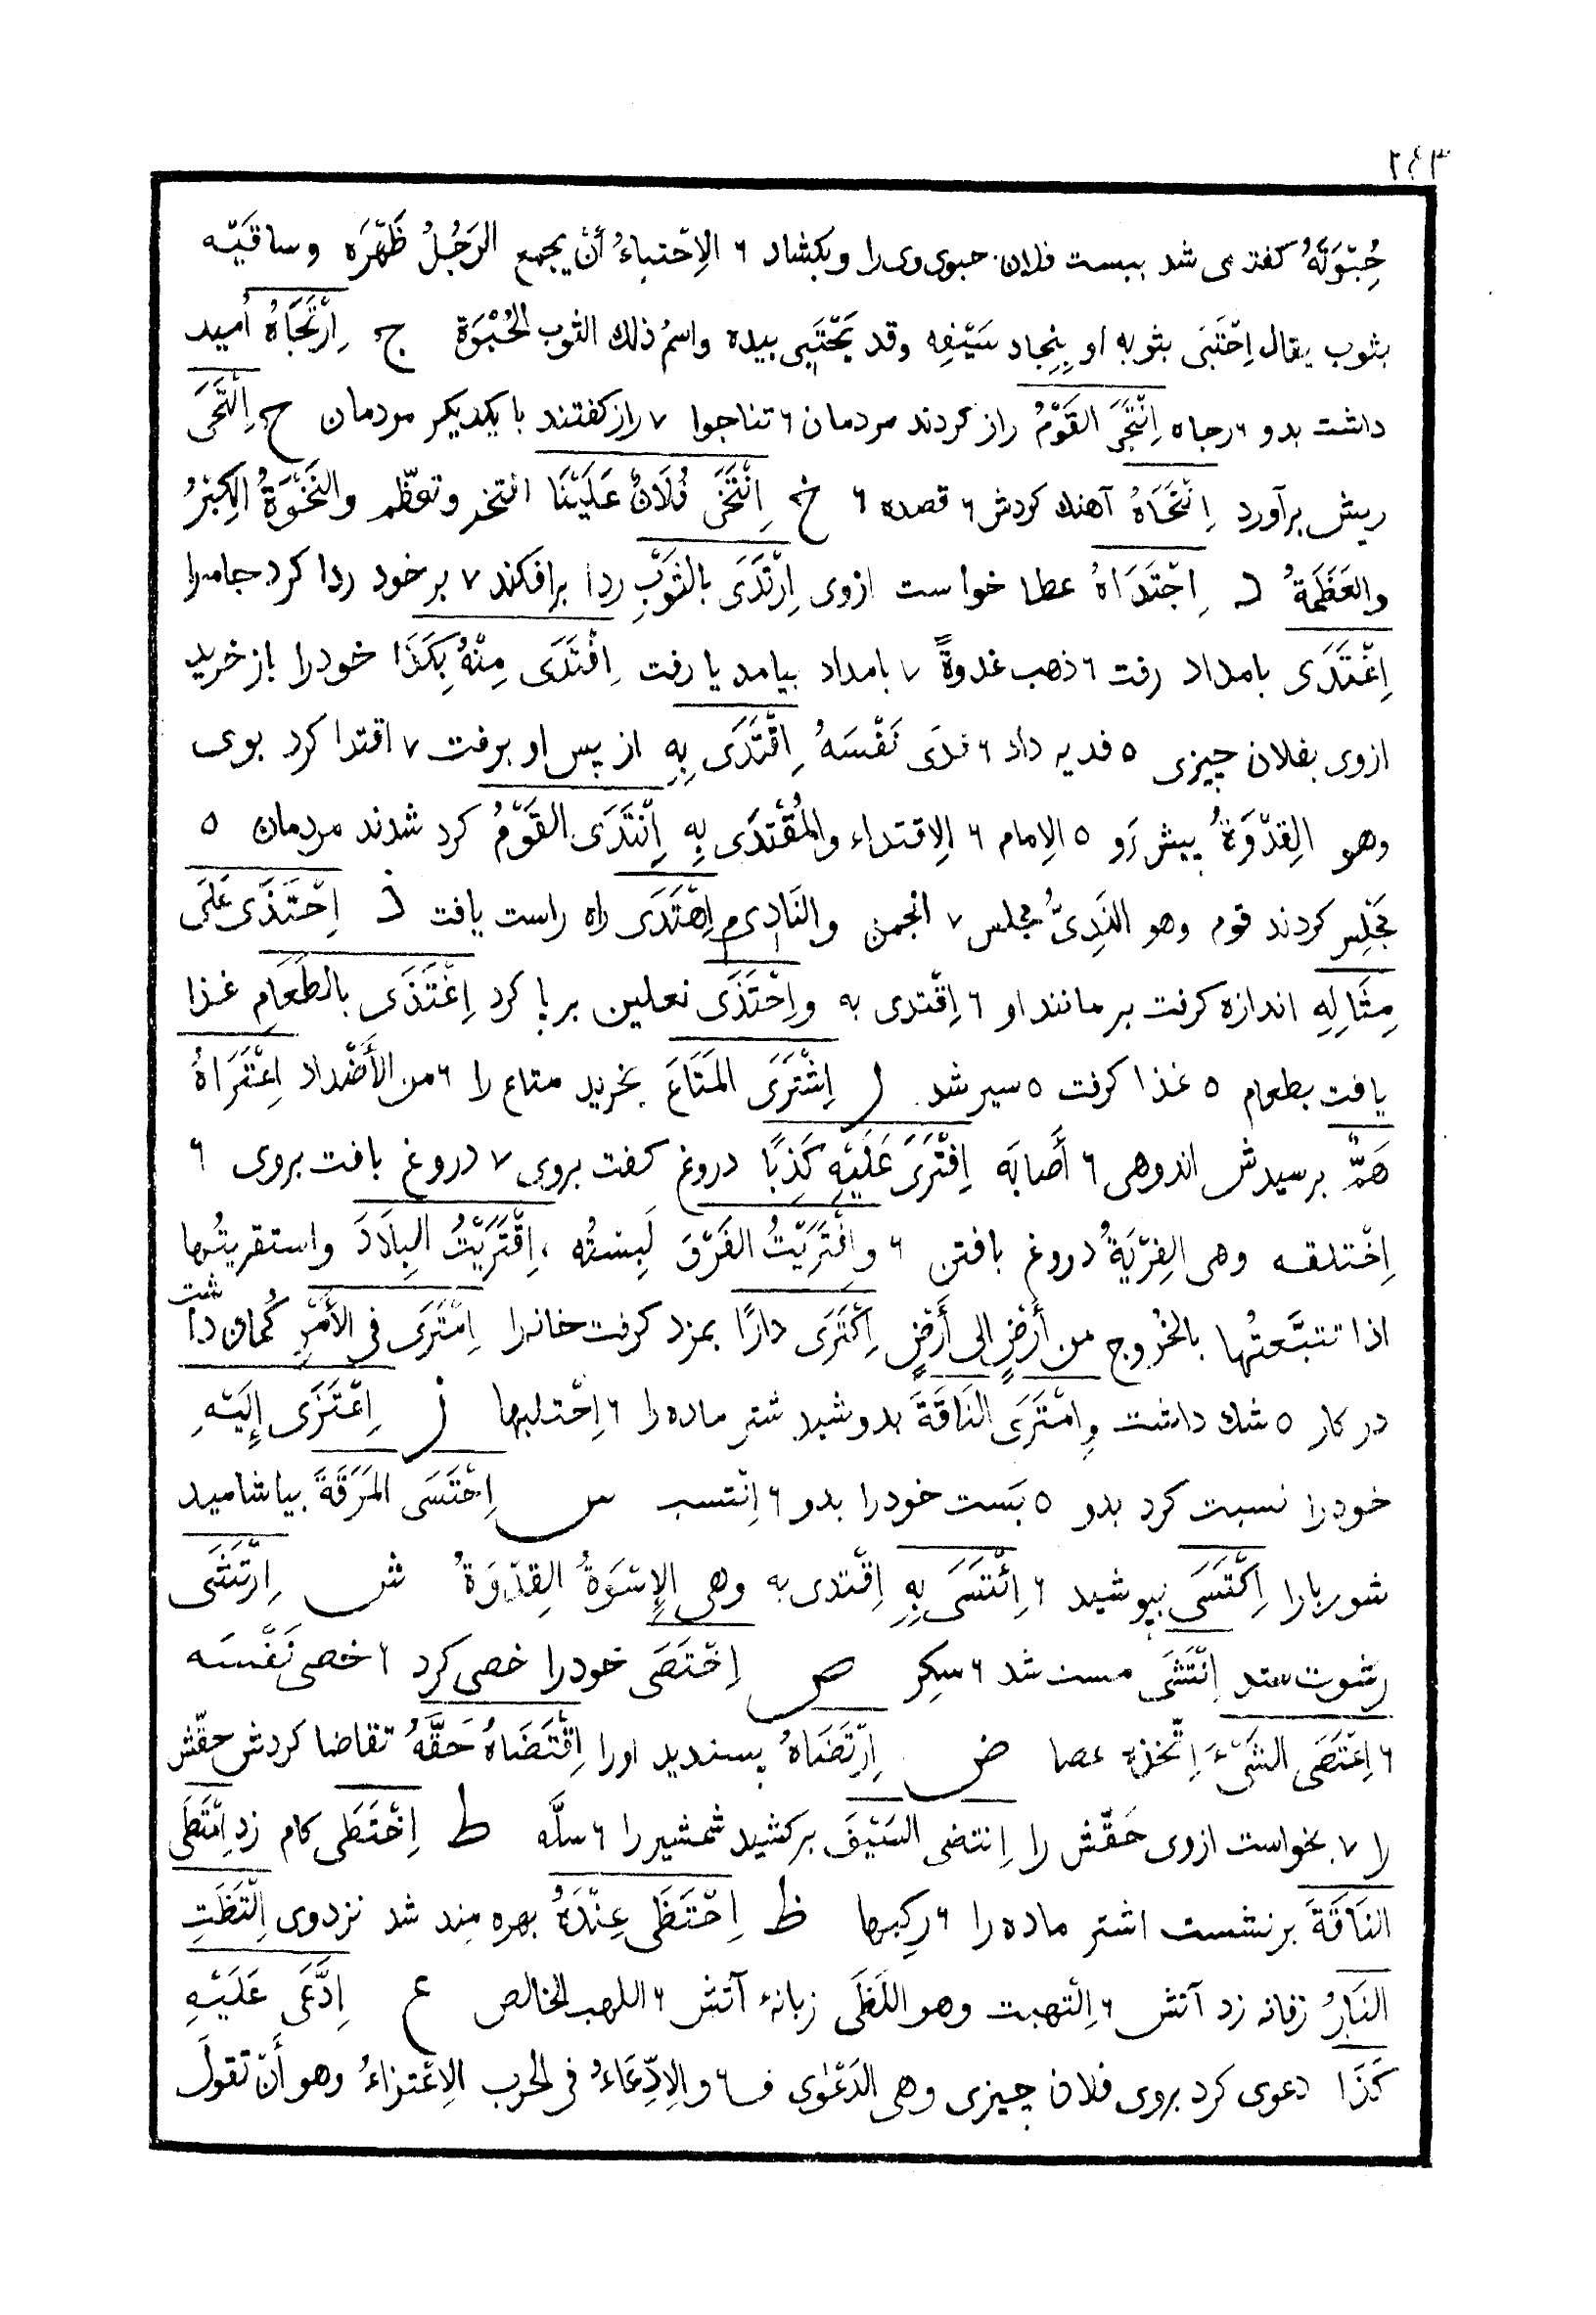 ٢٤٣
حُبْوَتَهُ كفته‌ى شد ببست فلان حبوى وى را وبكشاد ٦ الاِحْتباءُ أَنْ يجمع الرَجُلُ ظَهْرَه وساقَيْه
بثوب يقال اِحْتَبَى بثوبه او بِنِجاد سَيْفِه وقد يَحْتَبِى بيده واسمُ ذلك الثوب الحُبْوَة ج اِرْتَجَاهُ اُميد
داشت بدو ٦ رجاه اِنْتَجَى القَوْمُ راز كردند مردمان ٦ تناجوا ٧ راز كفتند با يكديكر مردمان ح اِلْتَحَى
ريش برآورد اِنْتَحَاهُ آهنك كردش ٦ قصده ٦ خ اِنْتَخَى فُلَانٌ عَلَيْنَا افتخر وتعظّم والنَخْوَةُ الكِبْرُ
والعَظَمَةُ د اِجْتَدَاهُ عطا خواست ازوى اِرْتَدَى بالثَوْبِ ردا برافكند ٧ بر خود ردا كرد جامه‌را
اِغْتَدَى بامداد رفت ٦ ذهب غدوةً ٧ بامداد بيامد يا رفت اِفْتَدَى مِنْهُ بِكَذَا خودرا باز خريد
ازوى بفلان چيزى ٥ فديه داد ٦ فدَى نَفْسَهُ اِقْتَدَى بِهِ از پس او برفت ٧ اقتدا كرد بوى
وهو القِدْوَةُ پيش رَو ٥ الاِمام ٦ الاِقتداء والمُقْتَدَى بِهِ اِنْتَدَى القَوْمُ كرد شدند مردمان ٥
مَجْلِس كردند قوم وهو النَدِىُّ مجلس ٧ انجمن والنَادِى م اِهْتَدَى راه راست يافت ذ اِحْتَذَى عَلَى
مِثَالِهِ اندازه كرفت بر مانند او ٦ اِقْتدى به واِحْتَذَى نعلين بر پا كرد اِغْتَذَى بالطَعَامِ غذا
يافت بطعام ٥ غذا كرفت ٥ سير شد ر اِشْتَرَى المَتَاعَ بخريد متاع را ٦ من الأَضْداد اِعْتَرَاهُ
هَمٌّ برسيدش اندوهى ٦ أَصابَه اِفْتَرَى عَلَيْهِ كَذِبًا دروغ كفت بروى ٧ دروغ بافت بروى ٦
اِخْتلقه وهى الفِرْيَةُ دروغ بافتن ٦ وافْتَرَيْتُ الفَرْوَ لَبِسْتُه، اِقْتَرَيْتُ البِلَادَ واستقريتُها
اذا تتبَّعتُها بالخُرُوج من أَرْضٍ إلى أَرْضٍ اِكْتَرَى دارًا بمزد كرفت خانه‌را اِمْتَرَى فى الأَمْرِ كُمان داشت
در كار ٥ شك داشت واِمْتَرَى النَاقَةَ بدوشيد شتر ماده را ٦ اِحْتلبها ز اِعْتَزَى إِلَيْهِ
خودرا نسبت كرد بدو ٥ بَست خودرا بدو ٦ اِنْتسب س اِحْتَسَى المَرَقَةَ بياشاميد
شوربارا اِكْتَسَى بپوشيد ٦ اِئْتَسَى بِهِ اِقْتدى به وهى الإِسْوَةُ القِدْوَةُ ش اِرْتَشَى
رشوت ستد اِنْتَشَى مست شد ٦ سكِر ص اِخْتَصَى خودرا خصى كرد ٦ خصى نَفْسَه
٦ اِعْتَصَى الشَىْءَ اِتَّخذه عصا ض اِرْتَضَاهُ پسنديد اورا اِقْتَضَاهُ حَقَّهُ تقاضا كردش حقّش
را ٧ بخواست ازوى حَقّش را اِنتضى السَيْفَ بركشيد شمشير را ٦ سلَّه ط اِخْتَطَى كام زد اِمْتَطَى
النَاقَةَ برنشست اشتر ماده را ٦ ركِبها ظ اِحْتَظَى عِنْدَهُ بهره مند شد نزد وى اِلْتَظَتِ
النَارُ زفانه زد آتش ٦ اِلْتهبت وهو اللَظَى زبانۀ آتش ٦ اللهب الخالص ع اِدَّعَى عَلَيْهِ
كَذَا دعوى كرد بروى فلان چيزى وهى الدَعْوٰى ف ٦ والاِدِّعَاءُ فى الحرب الاِعْتزاءُ وهو أَنْ تقولَ